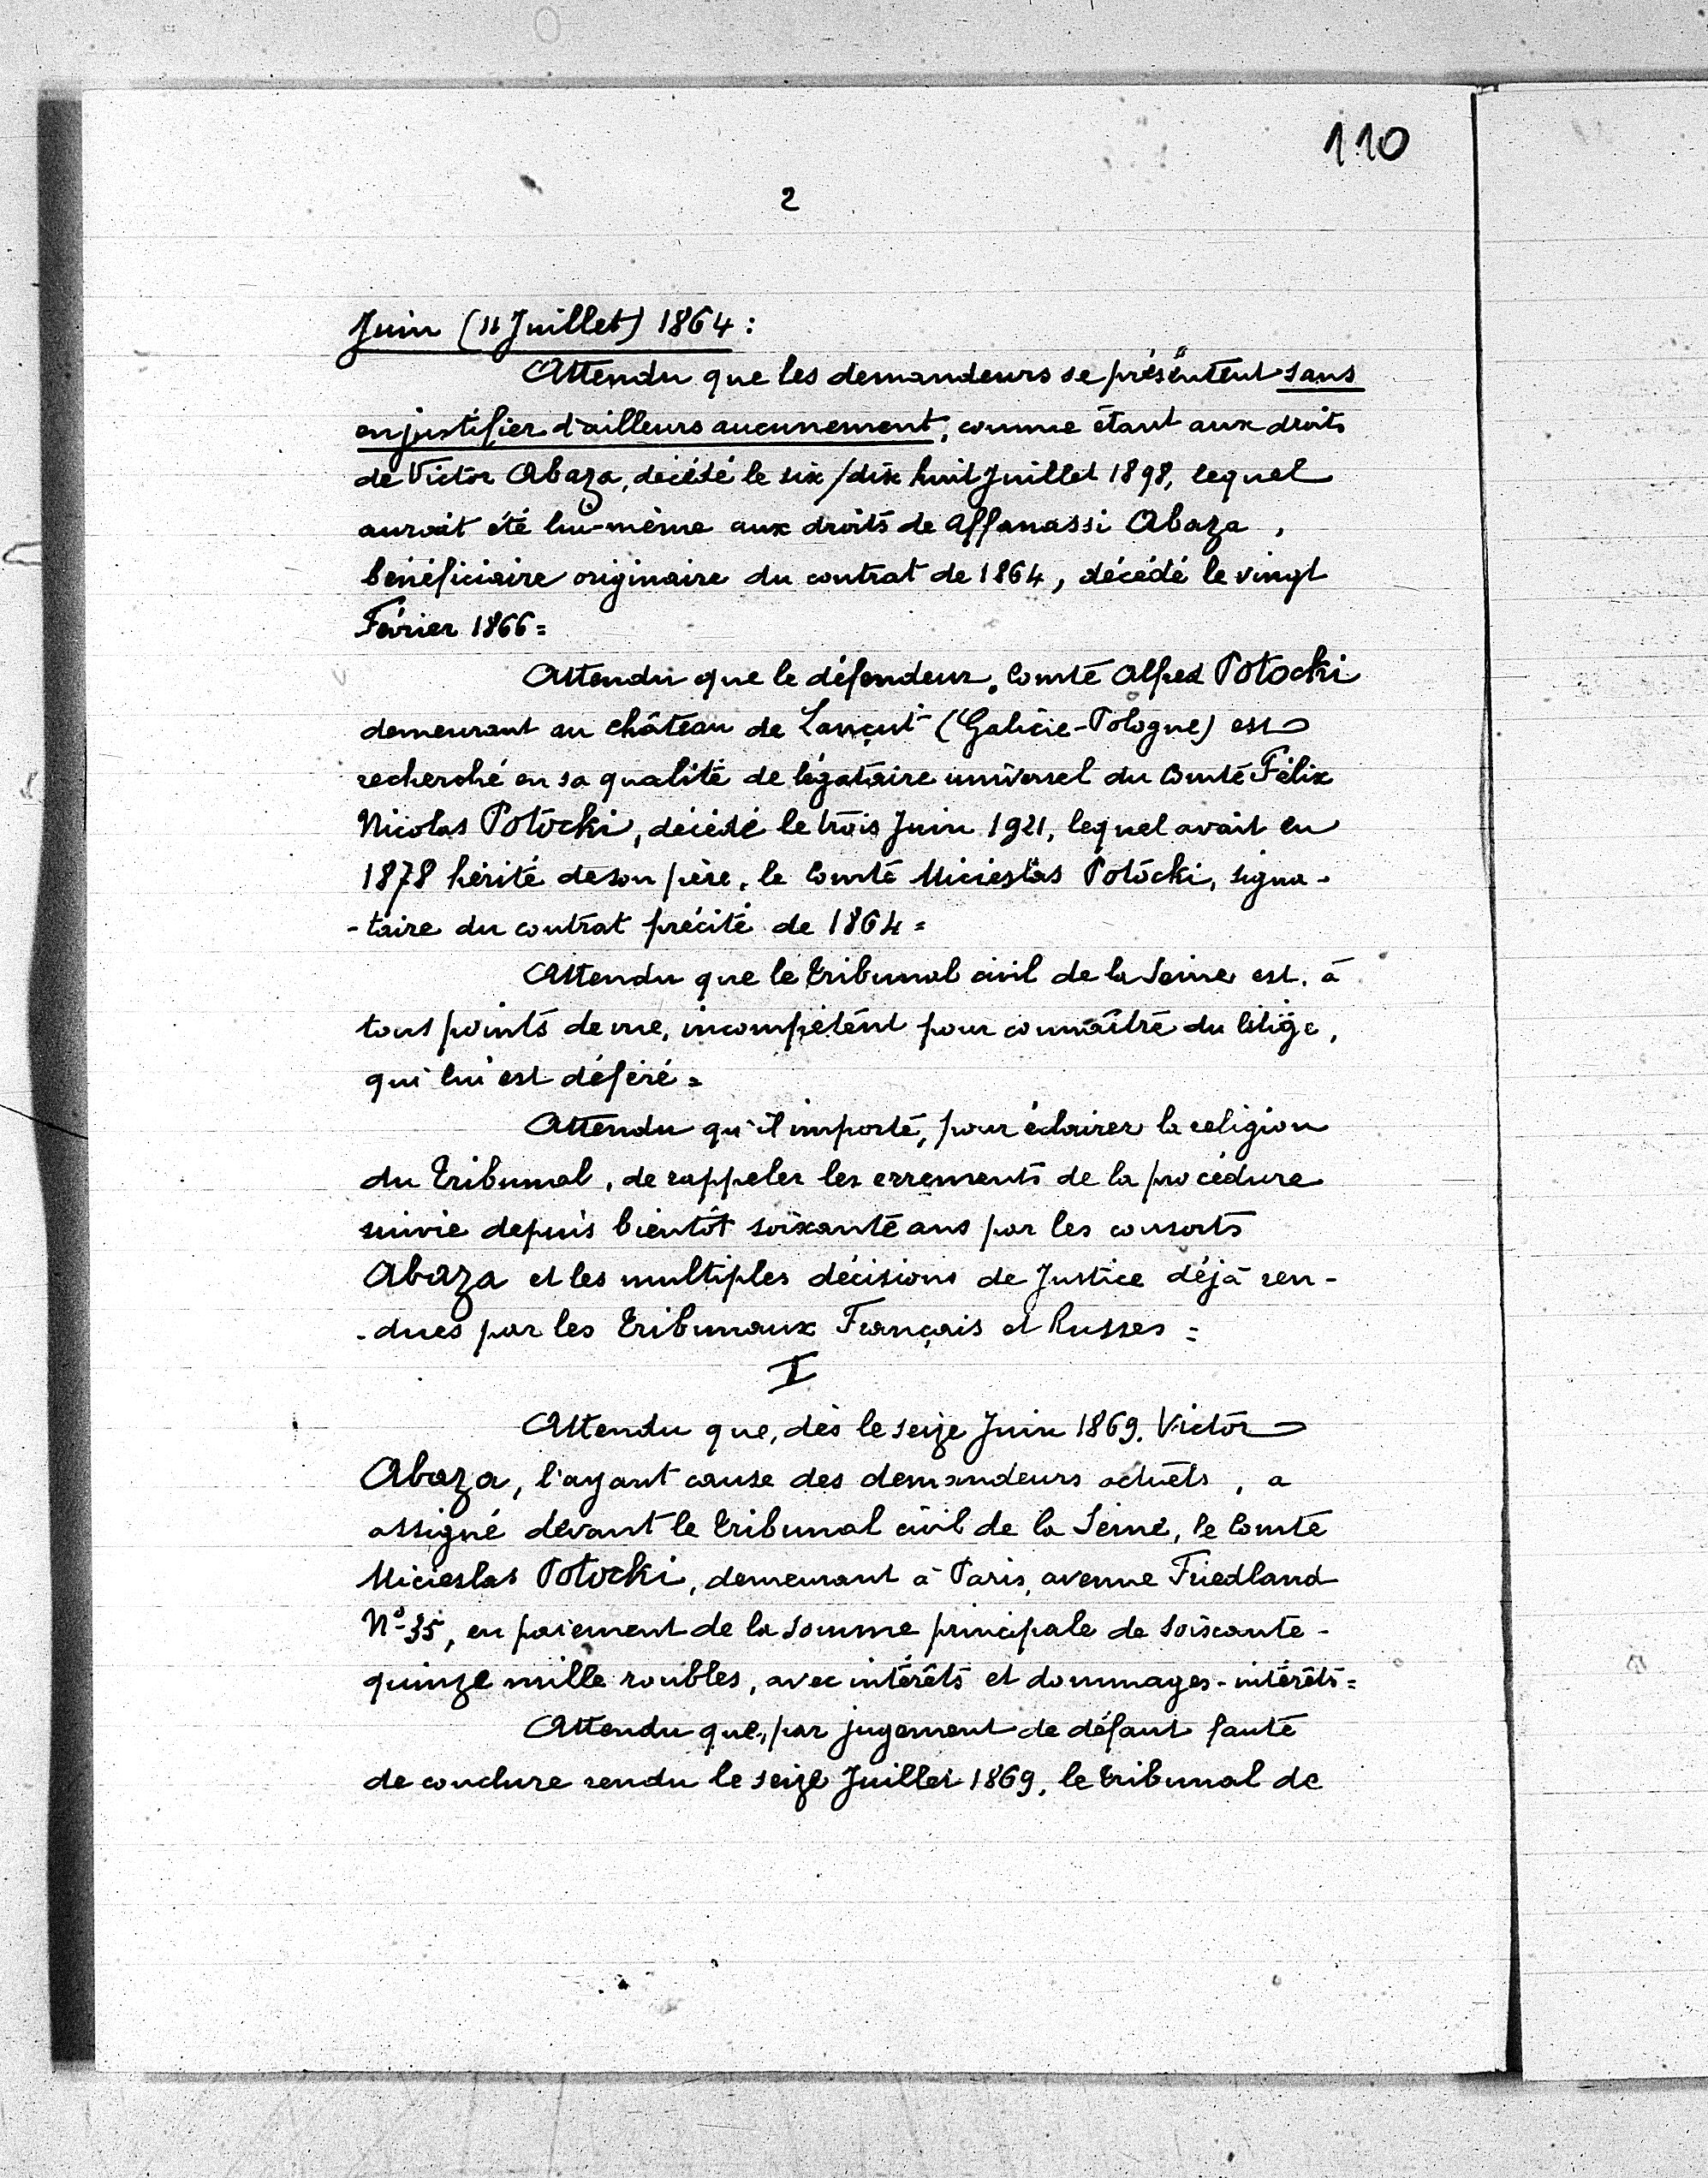 110
2
Juin (11 Juillet) 1864 :
Attendu que les demandeurs se présentent sans
en justifier d'ailleurs aucunement, comme étant aux droits
de Victor Abaza, décédé le six/dix huit Juillet 1898, lequel
aurait été lui-même aux droits de Affanassi Abaza,
bénéficiaire originaire du contrat de 1864, décédé le vingt
Février 1866 =
Attendu que le défendeur, Comte Alfred Potocki
demeurant au château de Lançut (Galicie-Pologne) est
recherché en sa qualité de légataire universel du Comte Félix
Nicolas Potocki, décédé le trois Juin 1921, lequel avait en
1878 hérité de son père, le Comte Micieslas Potocki, signa-
-taire du contrat précité de 1864 =
Attendu que le Tribunal civil de la Seine est, à
tous points de vue, incompétent pour connaître du litige,
qui lui est déféré =
Attendu qu'il importe, pour éclairer la religion
du Tribunal, de rappeler les errements de la procédure
suivie depuis bientôt soixante ans par les consorts
Abaza et les multiples décisions de Justice déjà ren-
-dues par les Tribunaux Français et Russes =
I
Attendu que, dès le seize Juin 1869, Victor
Abaza, l'ayant cause des demandeurs actuels, a
assigné devant le Tribunal civil de la Seine, le Comte
Micieslas Potocki, demeurant à Paris, avenue Friedland
N° 35, en paiement de la somme principale de soixante-
quinze mille roubles, avec intérêts et dommages-intérêts =
Attendu que, par jugement de défaut faute
de conclure rendu le seize Juillet 1869, le Tribunal de